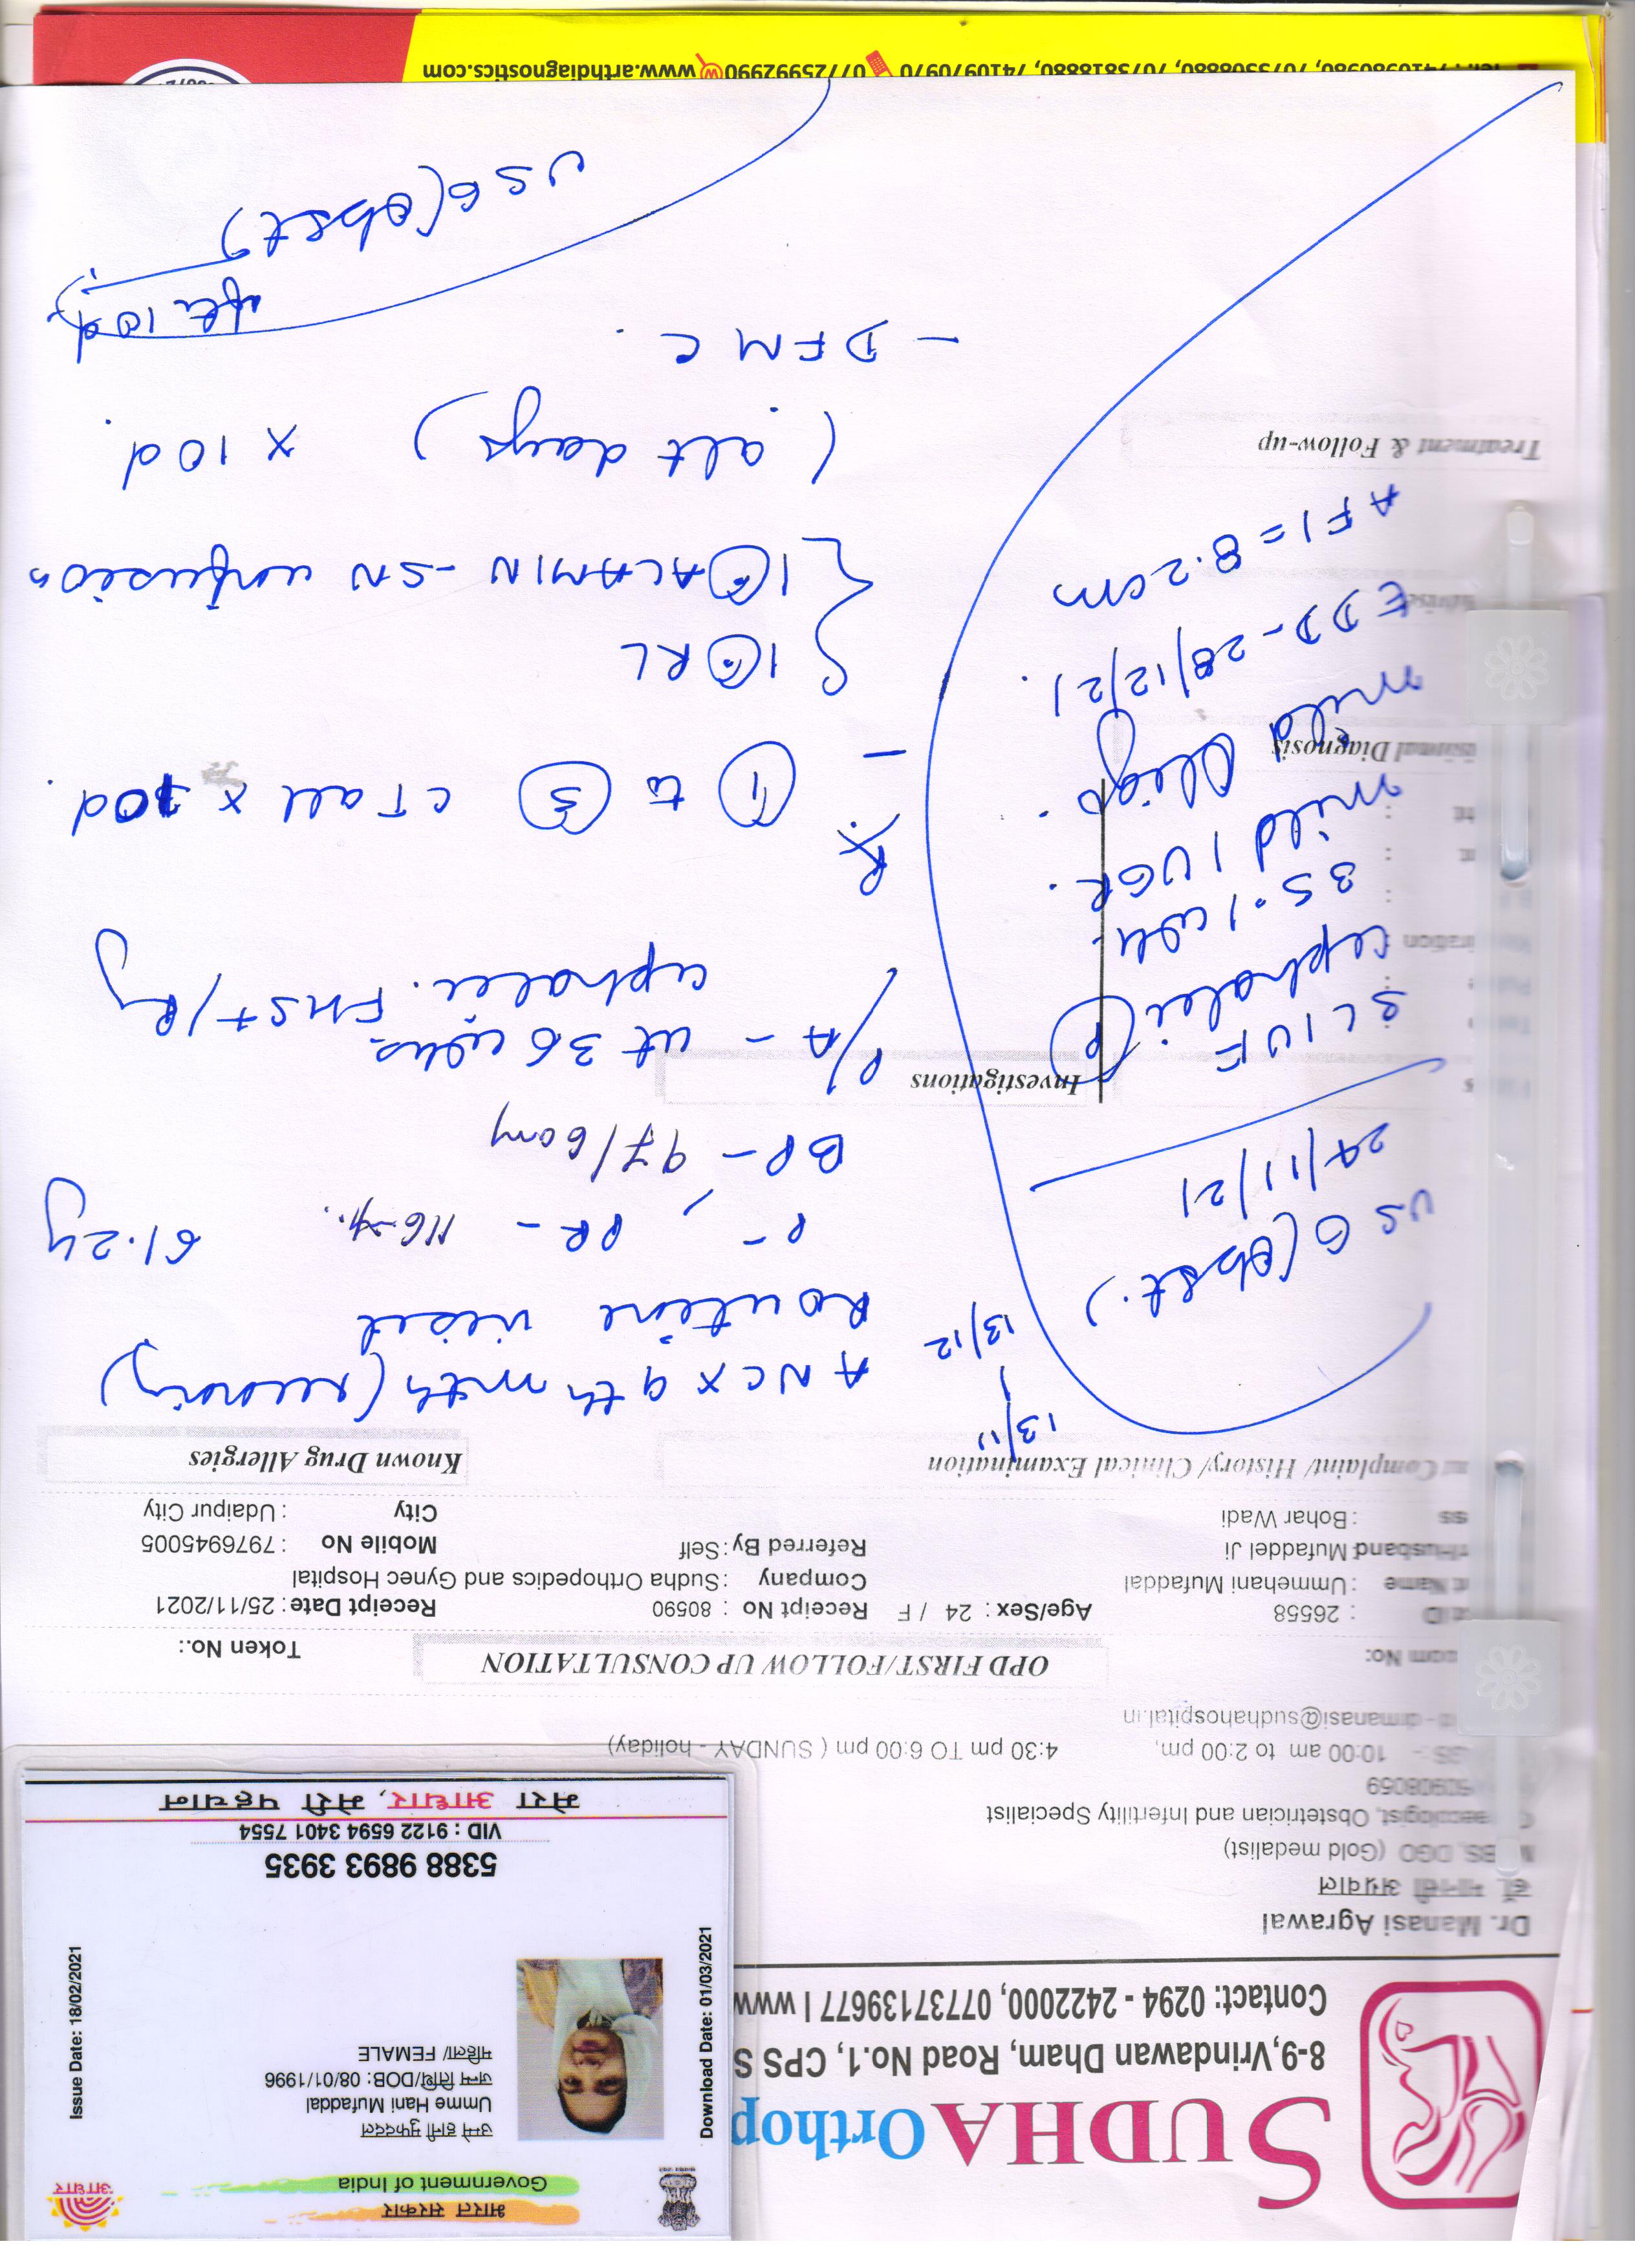 SUDHA Orthop
8-9,Vrindawan Dham, Road No.1, CPS S
Contact: 0294 - 2422000, 07737139677 I www
भारत सरकार
Government of India
आधार
उम्मे हानी मुफद्दल
Umme Hani Mufaddal
जन्म तिथि/DOB: 08/01/1996
महिला/ FEMALE
Download Date: 01/03/2021
Issue Date: 18/02/2021
5388 9893 3935
VID : 9122 6594 3401 7554
मेरा आधार, मेरी पहचान
Dr. Manasi Agrawal
डॉ. मानसी अग्रवाल
BS, DGO (Gold medalist)
aecologist, Obstetrician and Infertility Specialist
50908059
10:00 am to 2:00 pm, 4:30 pm TO 6:00 pm ( SUNDAY - holiday)
drmanasi@sudhahospital.in
OPD FIRST/FOLLOW UP CONSULTATION
Token No.:
ID : 26558 Age/Sex : 24 / F Receipt No : 80590 Receipt Date : 25/11/2021
Name : Ummehani Mufaddal Company : Sudha Orthopedics and Gynec Hospital
Husband Mufaddel Ji Referred By : Self Mobile No : 7976945005
ss : Bohar Wadi City : Udaipur City
Complaint/ History/ Clinical Examination
Known Drug Allergies
13/11
13/12
ANC x 9th mth
Routine visit
P - PR - 116
61.2
BP - 97/60
P/A - ut 36 wks.
cephalic. FHS+/R
Investigations
USG (Obst.)
24/11/21
SLIUF
cephalic (P)
35.1 wk.
mild IUGR.
mild Oligo.
EDD - 28/12/21.
AFI = 8.2cm
Diagnosis
Advise
Treatment & Follow-up
Rx
- 1 to 5 CT all x 10d.
1 RL
1 ALAMIN-SN infusion
(alt days) x 10d.
- DFMC.
USG (Obst)
after 10d.
7410970970 07725992990 www.arthdiagnostics.com